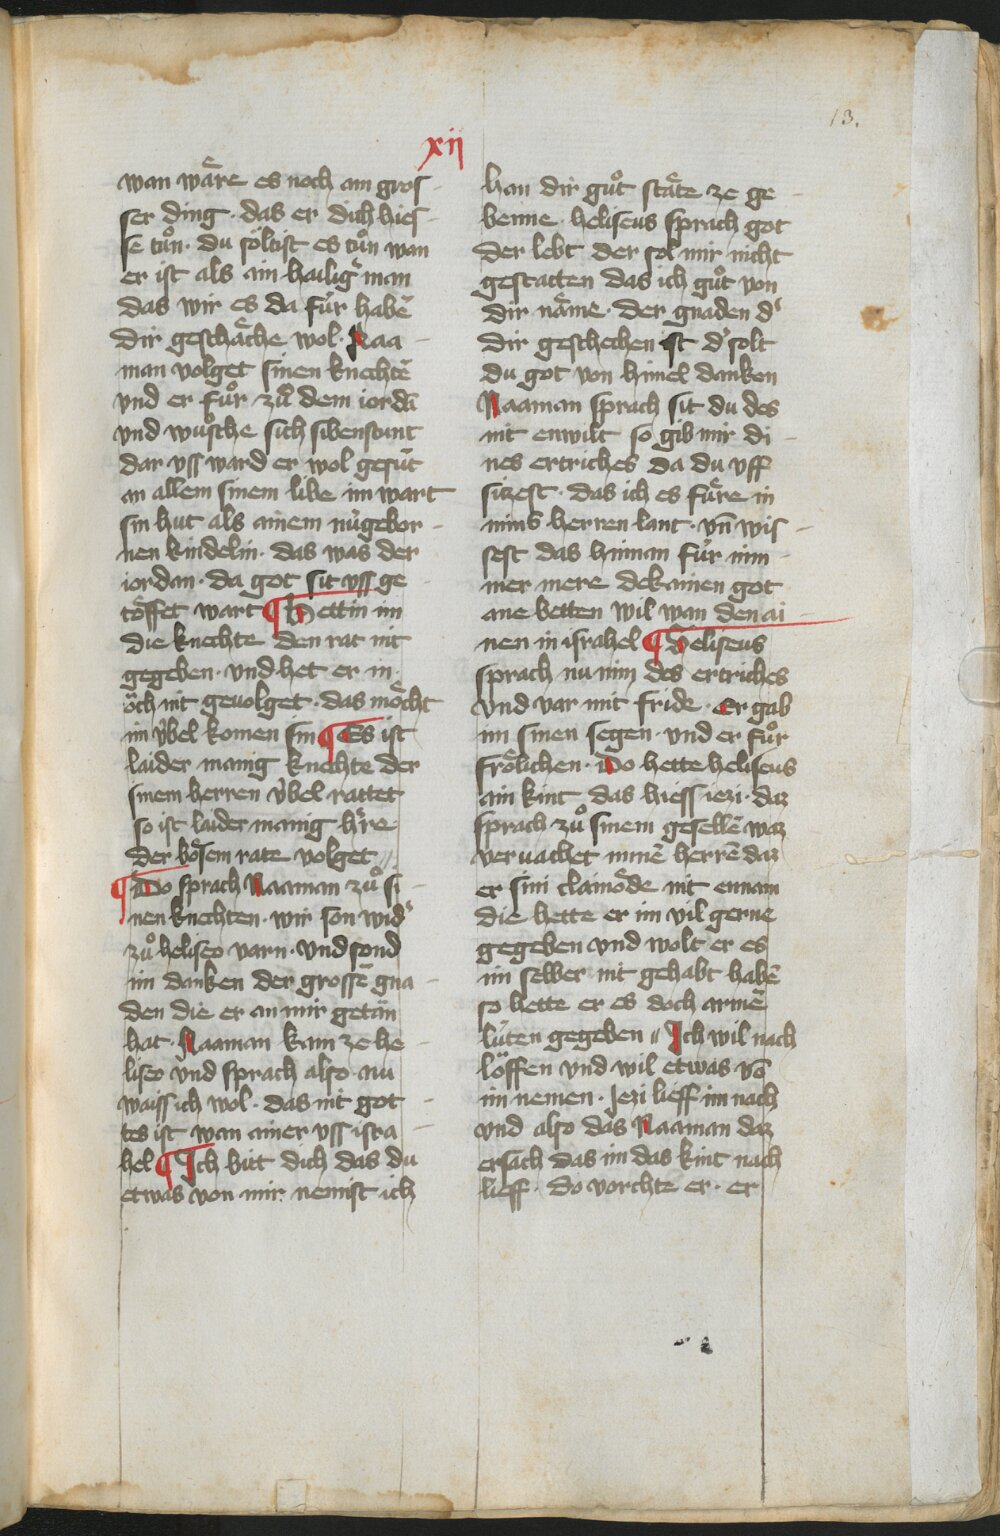 13.
xij
wan wåre es noch ain gros-
ser ding · das er dich hies-
se tuͦn · du söltist es tuͦn wan
er ist als ain hailigͤ man
das wir es da fúr habē
dir geschäche wol · Naa-
man volget sinen knechtē
vnd er fuͦr zuͦ dem iordā
vnd wuͦsche sich sibenstunt
dar uss ward er wol gesūt
an allem sinem libe im wart
sin hut als ainem núgebor-
nen kindelin · das was der
iordan · da got sit uss ge-
töffet wart ¶ Hettin im
die knechte den rat nit
gegeben · vnd het er in
öch nit geuolget · das möcht
im v́bel komen sin ¶ Es ist
laider manig knechte der
sinem herren v́bel rattet
so ist laider manig hͤre
der bösem rate volget //
¶ Do sprach Naaman zuͦ si-
nen knechten · wir son widͤ
zuͦ heliseo varn · vnd sond
im danken der grossē gna-
den die er an mir getān
hat · Naaman kam ze he-
liseo vnd sprach also nu
waiss ich wol · das nit got-
tes ist wan ainer uss isra-
hel ¶ Ich bitt dich das du
etwas von mir nemist ich
han dir guͦt stäte ze ge-
benne · heliseus sprach got
der lebt der sol mir nicht
gestatten das ich guͦt von
dir näme · der gnaden dͤ
dir geschechen ist dͤ solt
du got von himel danken
Naaman sprach sit du des
nit enwilt so gib mir di-
nes ertriches da du uff
sitzest · das ich es fuͤre in
mins herren lant · vn̄ wis-
sest das hinnan fúr nim-
mer mere dekainen got
ane betten wil wan den ai-
nen in israhel ¶ Heliseus
sprach nu nim des ertriches
vnd var mit fride · Er gab
im sinen segen · vnd er fuͦr
frölichen · Do hette heliseus
ain kint das hiess iezi · daz
sprach zuͦ sinem gesellē waz
veruachet minē herrē daz
er sini clainöde nit ennam
die hette er im vil gerne
gegeben vnd wolt er es
im selber nit gehabt habē
so hette er es doch armē
lúten gegeben // Ich wil nach
löffen vnd wil etwas vō
im nemen · Jezi lieff im nach
vnd also das Naaman daz
ersach das im das kint nach
lieff · do vorchte er · er